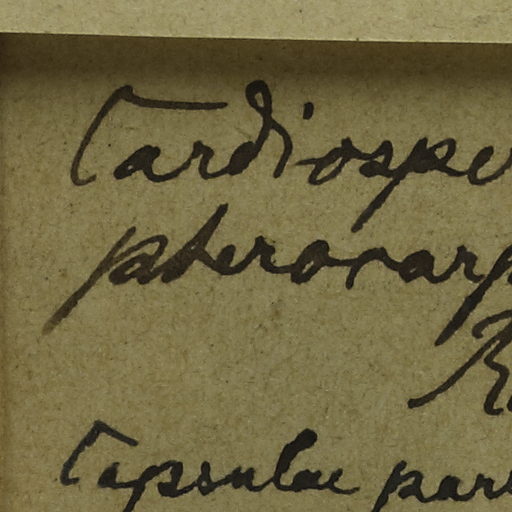 Cardiospe
pterocarp
R
Capsulae par